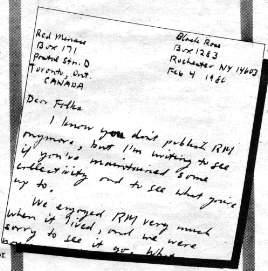 Red Menace
Box 171
Postal Stn. D
Toronto, Ont.
CANADA
Black Rose
Box 1283
Rochester NY 14603
Feb 4 1980
Dear Folks
I know you don't publish RM
anymore, but I'm writing to see
if you've maintained some
collectivity and to see what you're
up to.
We enjoyed RM very much
when it lived, and we were
sorry to see it go. What